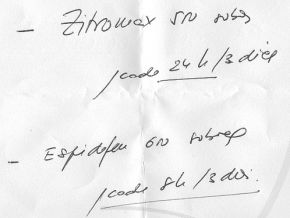 - Zitromax 500 sobres
1 cada 24 h / 3 dias
- Espidifen 600 sobres
1 cada 8h / 3 dias.